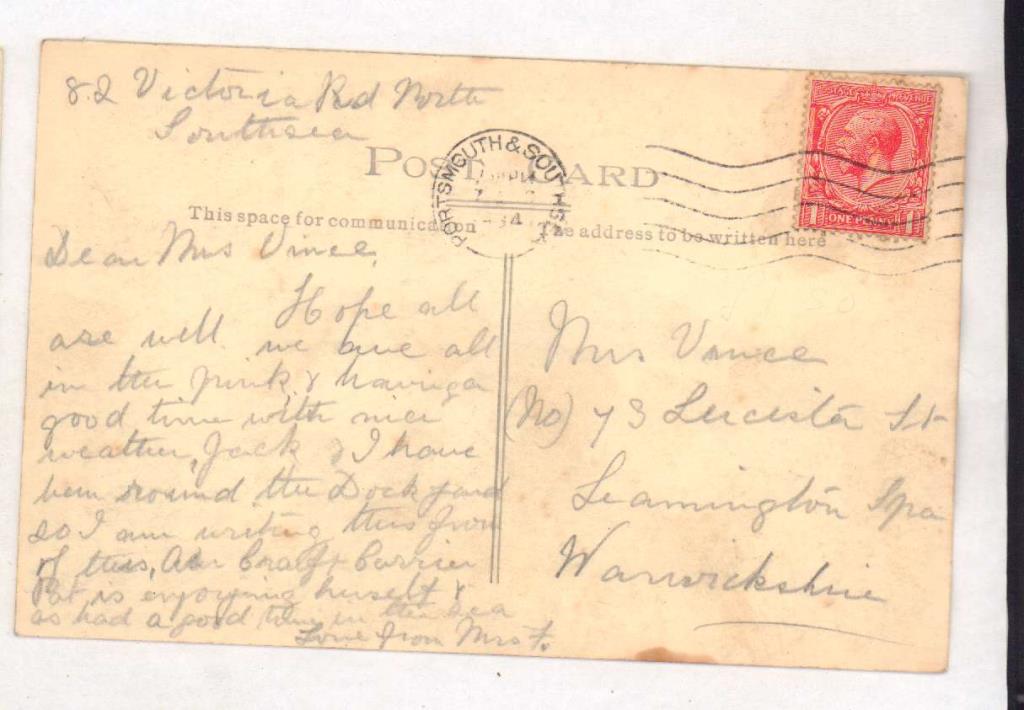 82 Victoria Rd North
Southsea
POST CARD
PORTSMOUTH & SOUTHSEA
34
POSTAGE REVENUE
1 ONE PENNY 1
This space for communication
The address to be written here
Dear Mrs Vince,
Hope all
are well we are all
in the pink, & having a
good time with nice
weather, Jack & I have
been round the Dockyard
so I am writing this from
of this, Air Craft Carrier
Pat is enjoying herself &
as had a good time in the sea
Love from Mrs F.
Mrs Vince
(No) 73 Leicester St
Leamington Spa
Warwickshire